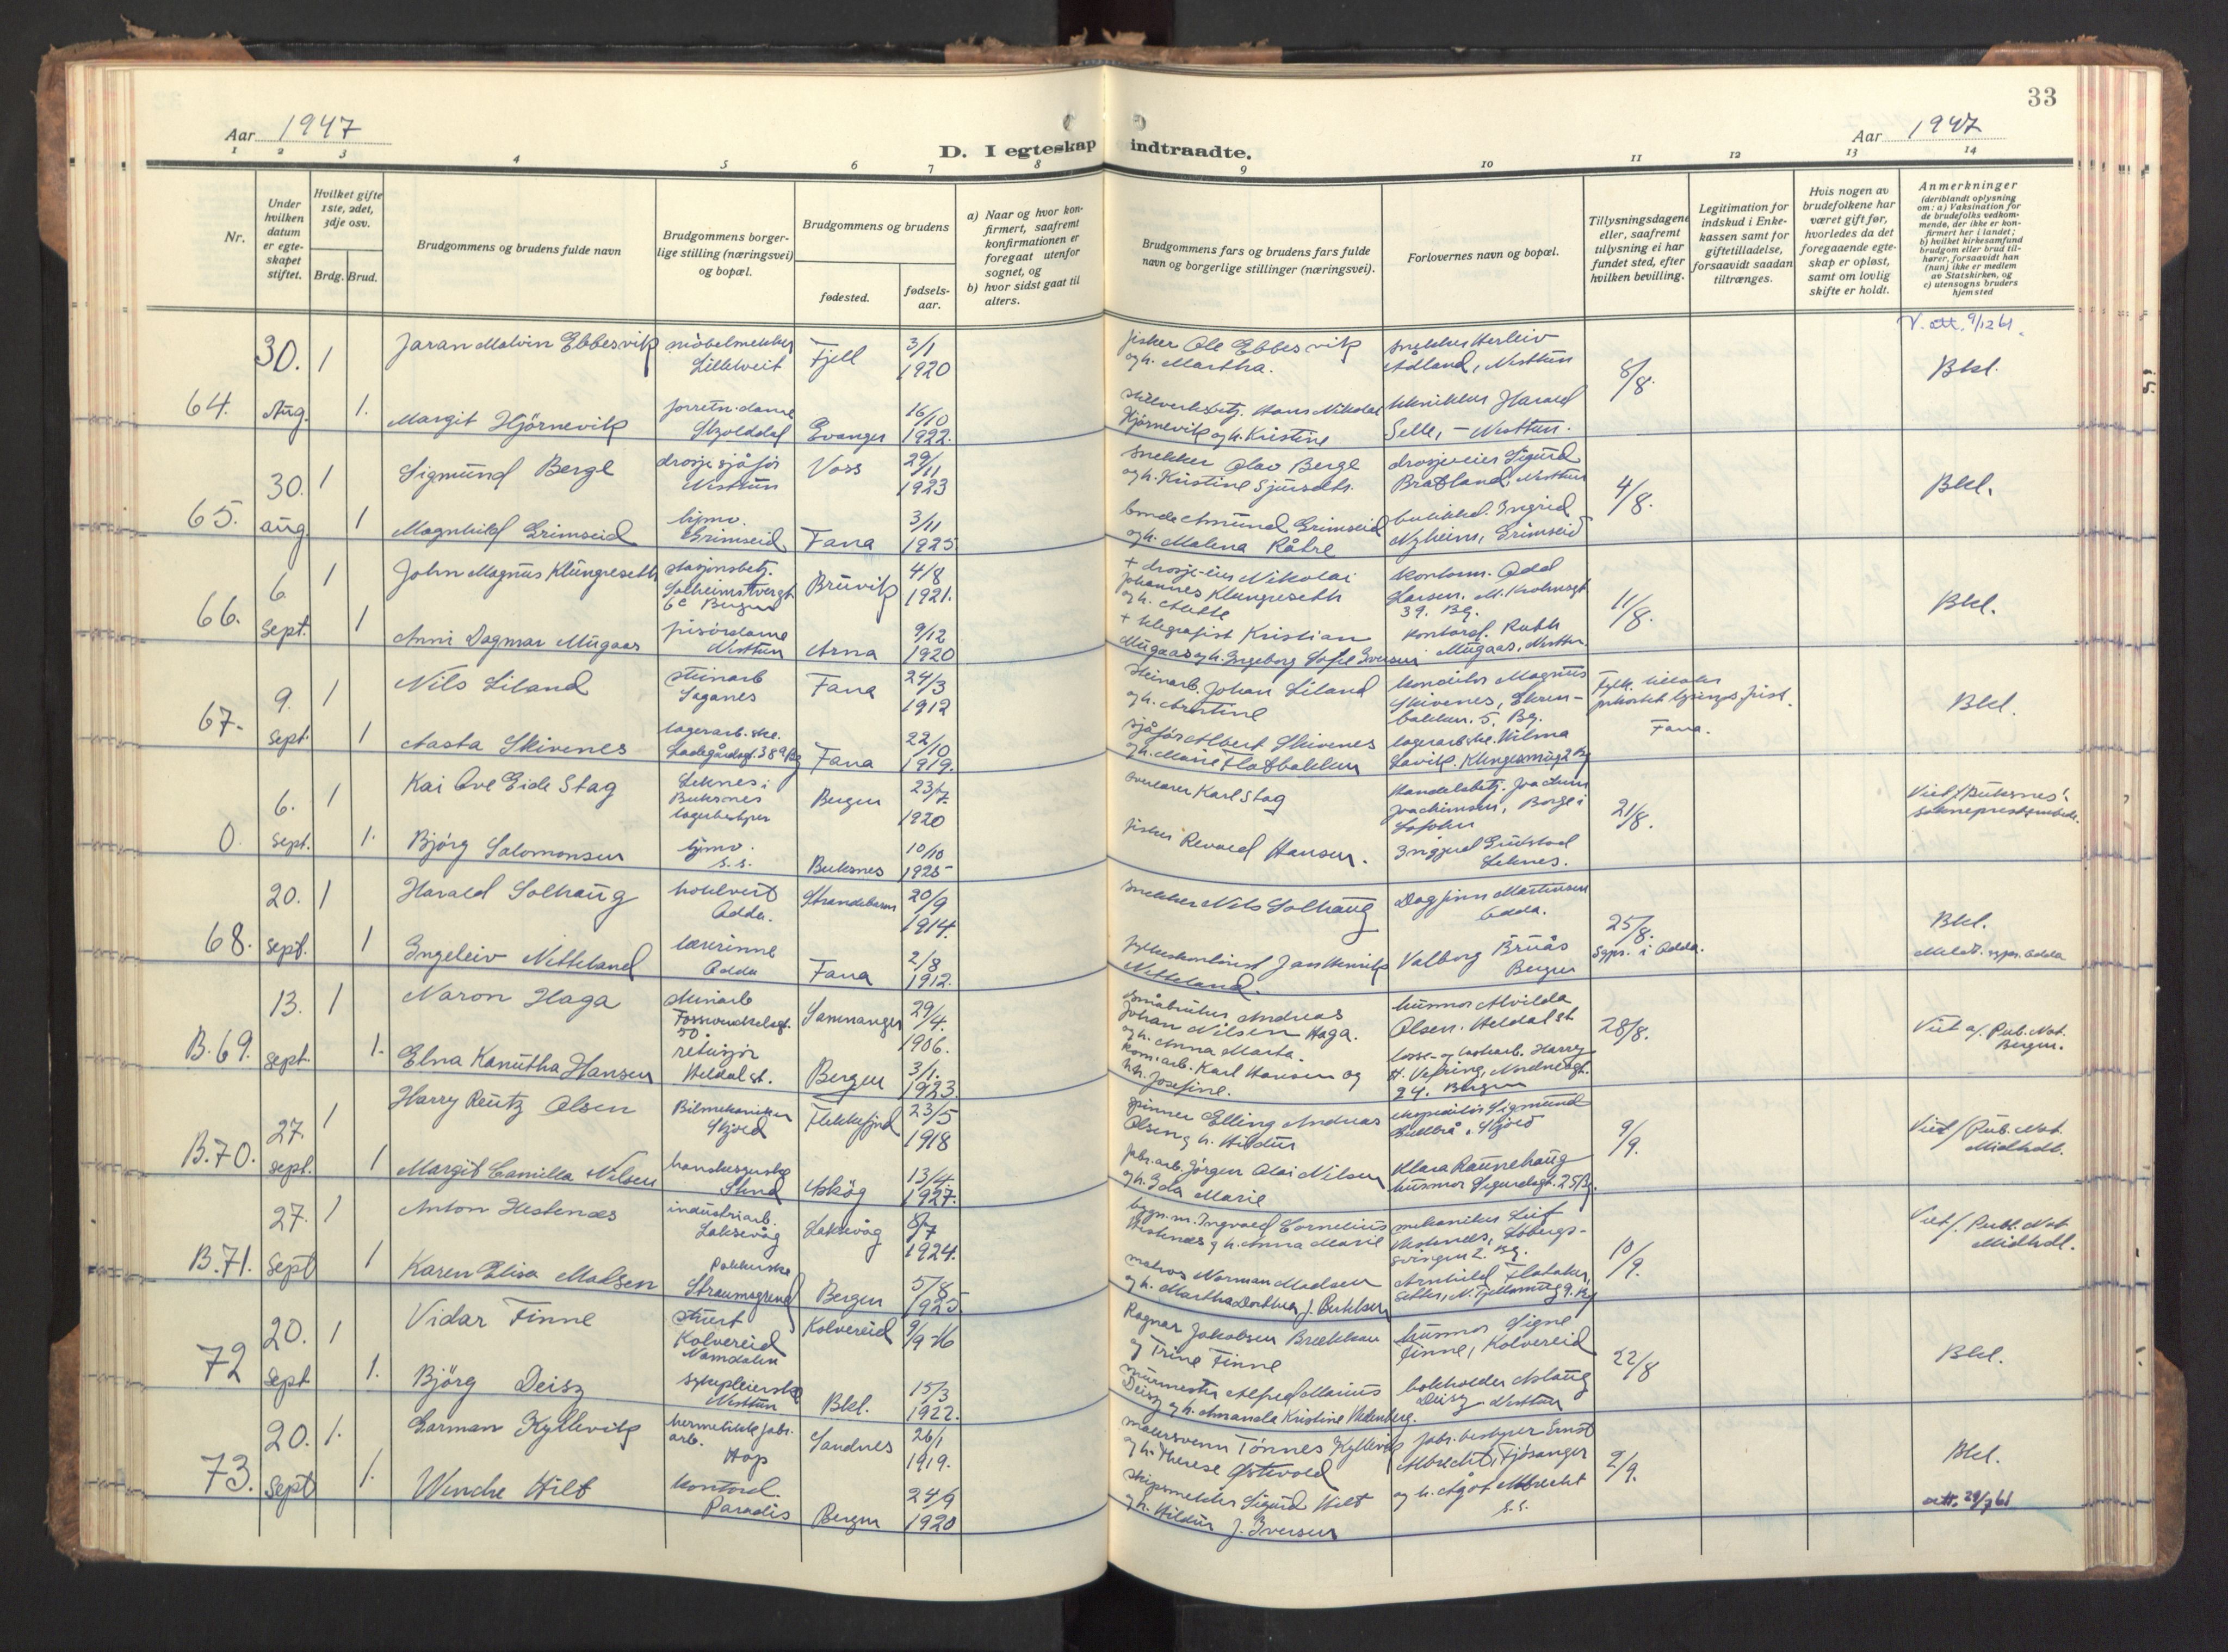 33
Aar 1947
Aar 1947
D. I egteskap indtraadte.
1 2 3 4 5 6 7 8 9 10 11 12 13 14
Nr.
Under hvilken datum er egteskapet stiftet.
Hvilket gifte 1ste, 2det, 3dje osv.
Brdg. Brud.
Brudgommens og brudens fulde navn
Brudgommens borgerlige stilling (næringsvei) og bopæl.
Brudgommens og brudens
fødested.
fødselsaar.
a) Naar og hvor konfirmert, saafremt konfirmationen er foregaat utenfor sognet, og
b) hvor sidst gaat til alters.
Brudgommens fars og brudens fars fulde navn og borgerlige stillinger (næringsvei).
Forlovernes navn og bopæl.
Tillysningsdagene eller, saafremt tillysning ei har fundet sted, efter hvilken bevilling.
Legitimation for indskud i Enkekassen samt for giftetilladelse, forsaavidt saadan tiltrænges.
Hvis nogen av brudefolkene har været gift før, hvorledes da det foregaaende egteskap er opløst, samt om lovlig skifte er holdt.
Anmerkninger (deriblandt oplysning om: a) Vaksination for de brudefolks vedkommende, der ikke er konfirmert her i landet; b) hvilket kirkesamfund brudgom eller brud tilhører, forsaavidt han (hun) ikke er medlem av Statskirken, og c) utensogns bruders hjemsted
64.
30. Aug.
1
Jaran Malvin Ebbesvik
møbelmekker
Fjell
3/1 1920
fisker Ole Ebbesvik
og h. Martha.
snekker Herleiv
Ådland, Nesttun
8/8.
V. att. 9/12 61.
Bkl.
1.
Margit Hjörnevik
forretn.dame
Skjolddal
Evanger
16/10 1922.
Hans Nikolai
Hjørnevik og h. Kristine
Harald
Selle, - Nesttun.
65.
30. aug.
1
Sigmund Berge
drosjesjåfør
Nesttun
Voss
29/11 1923
snekker Olav Berge
og h. Kristine Sjursdtr.
drosjeeier Sigurd
Bratland, Nesttun
4/8.
Bkl.
1
Magnhild Grimseid
hjmv.
Grimseid
Fana
3/11 1925
bonde Amund Grimseid
og h. Malena Råtre
Ingrid
Nyheim, Grimseid
66.
6 Sept.
1
John Magnus Klungreseth
stasjonsbetj.
6c Bergen
Bruvik
4/8 1921.
+ drosje-eier Nikolai
Johannes Klungreseth
og h. Mette
kontorm. Odd
Larsen. M. Krohnsgt
39. Bg.
11/8.
Bkl.
1
Anni Dagmar Mugaas
frisördame
Nesttun
Arna
9/12 1920
+ telegrafist Kristian
Mugaas og h. Ingeborg Sofie Iversen
kontord. Ruth
Mugaas, Nesttun.
67.
9. Sept.
1
Nils Liland
steinarb
Saganes
Fana
24/3 1912
Steinarb. Johan Liland
konditor Magnus
Skivenes,
Fana.
Bkl.
1
Aasta Skivenes
lagerarb.ske.
Ladegårdsgt. 38a Bg
Fana
22/10 1919.
sjåfør Albert Skivenes
og h. Marie Flatbakken
lagerarb.ske. Hilma
0.
6. Sept.
1
Kai Ove Eide Stag
Leknes i
Buksnes
lagerbestyrer
Bergen
23/7. 1920
overlærer Karl Stag
Handelsbetj. Joachim
Joachimsen, Borge i
Lofoten
21/8.
Viet / Buksnes'
sokneprestembede.
1.
Bjørg Salomonsen
hjmv.
s.s.
Buksnes
10/10 1925
fisker Revold Hansen.
Leknes.
68.
20. Sept.
1
Harald Solhaug
hotelvert
Odda.
Strandebarm
20/9 1914.
snekker Nils Solhaug
Dagfinn Martinsen
Odda.
25/8.
Sgpr. i Odda.
Bkl.
Meldt. sgpr. Odda
1
Ingeleiv Netteland
lærerinne
Odda
Fana
2/8 1912.
Jan Henrik
Netteland.
Valborg Bruås
Bergen
B.69.
13. Sept.
1
Naron Haga
steinarb
50.
Samnanger
29/4. 1906.
småbruker Andreas
Johan Nilsen Haga.
og h. Anna Marta.
husmor Alvilda
Olsen. Heldal st.
28/8.
Viet a/. Pub. Not.
Bergen.
1.
Elna Kanutha Hansen
retusjør
Heldal st.
Bergen
3/1. 1923.
kom.arb. Karl Hansen og
h. Josefine.
losse- og lastearb. Harry
24. Bergen
B.70.
27. sept.
1
Harry Reutz Olsen
Bilmekaniker
Skjold
Flekkefjord
23/5 1918
spinner Elling Andreas
Olsen og h. Hildur
ekspeditør Sigmund
Skjold
9/9.
Viet / Pub. Not.
Midhdl.
1
Margit Camilla Nilsen
hanskesyerske
Stend
Askög
13/4. 1927.
fabr.arb. Jörgen Olai Nilsen
og h. Ida Marie
Klara Raunehaug
husmor Sigurdsgt. 25 Bg.
B.71.
27. Sept
1
Anton Hestenæs
industriarb.
Laksevåg
Laksevåg
8/7 1924.
bygn.m. Ingvald Cornelius
Hestenæs og h. Anna Marie
mekaniker Leif
Hestenæs, Løbergs-
svingen 2. Bg.
10/9.
Viet/. Publ. Not.
Midhdl.
1
Karen Elisa Madsen
Pakkerske
Straumsgrend
Bergen
5/8 1925
matros Norman Madsen
72
20. Sept
1
Vidar Finne
Kolvereid
Namdalen
Kolvereid
9/9 16
Ragnar Jakobsen Brækkan
og Trine Finne
husmor Signe
Finne, Kolvereid
22/8
Bkl.
1.
Björg Deisz
sykepleierske
Nesttun
Bkl.
15/3 1922.
murmester Alfred Marius
Deisz og h. Amanda Kristine Vedenberg.
bokholder Aslaug
Deisz. Nesttun
73.
20. Sept
1.
Garman Kyllevik
hermetikkfabr.
arb.
Hop
Sandnes
26/1 1919.
malersvenn Tønnes Kyllevik
og h. Therese Østvold
fabr.bestyrer Ernst
Albrecht, Fjøsanger
2/9.
Bkl.
1.
Wenche Hilt
kontord.
Paradis
Bergen
24/9 1920
skipsmekler Sigurd Hilt
og h. Hildur J. Iversen
og h. Ågot Albrecht
s.s.
att. 29/7 61